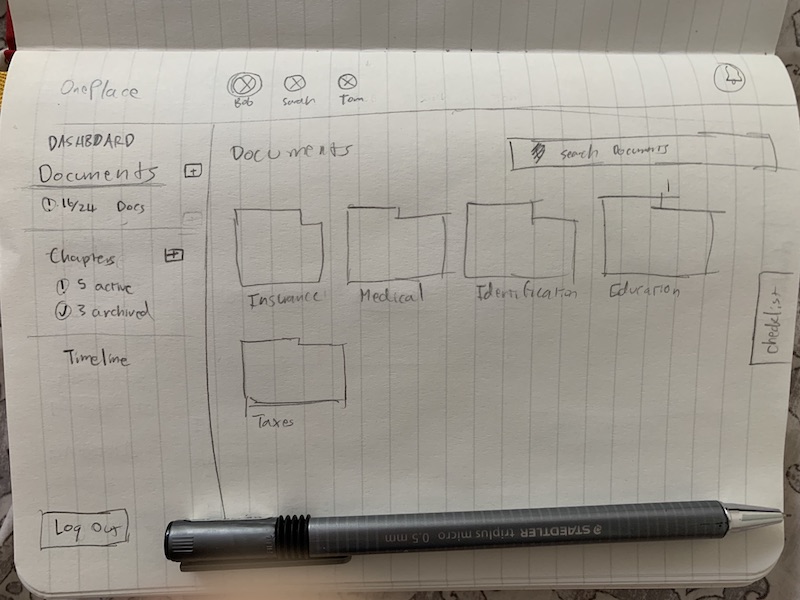 OnePlace
Bob
Sarah
Tom
DASHBOARD
Documents
! 16/24 Docs
Chapters
! 5 active
✓ 3 archived
Timeline
Log Out
Documents
Search Documents
Insurance
Medical
Identification
Education
Taxes
checklist
STAEDTLER triplus micro 0.5 mm